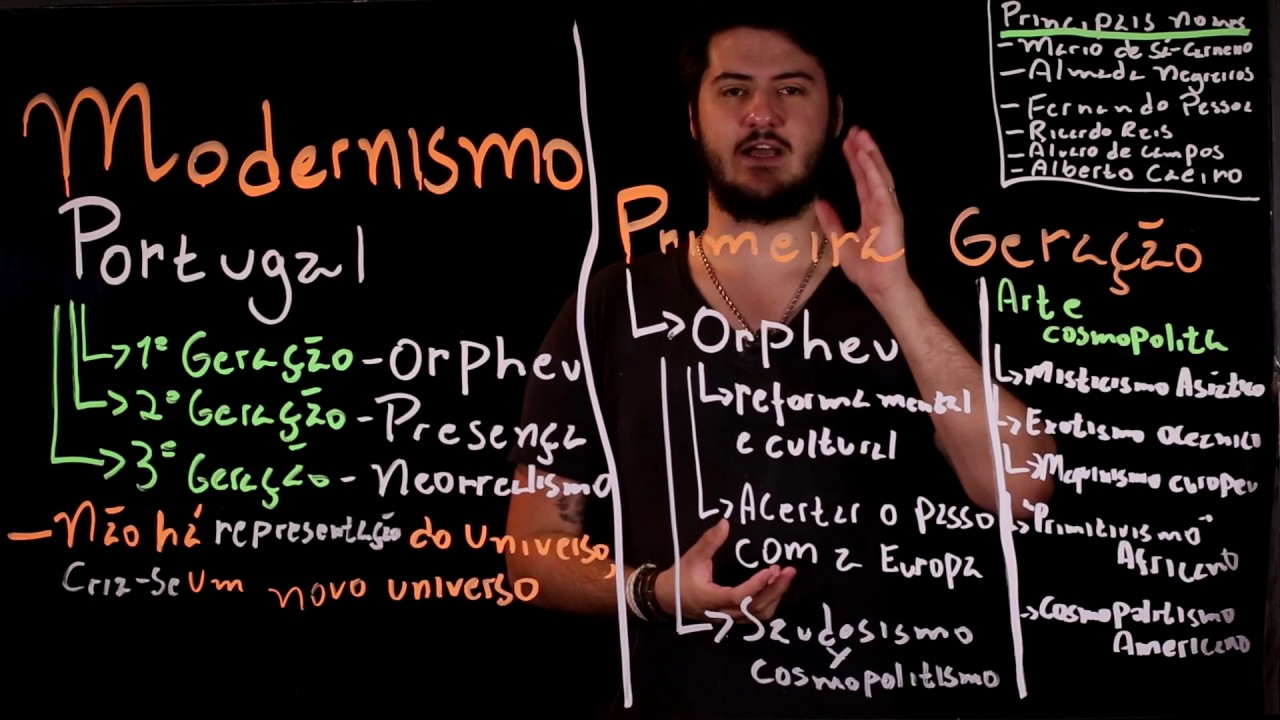 Modernismo
Portugal
1ª Geração - Orpheu
2ª Geração - Presença
3ª Geração - Neorrealismo
- Não há representação do universo,
Cria-se um novo universo
Primeira Geração
Orpheu
reforma mental
e cultural
Acertar o passo
com a Europa
Saudosismo
x
cosmopolitismo
Principais nomes
- Mário de Sá-Carneiro
- Almada Negreiros
- Fernando Pessoa
- Ricardo Reis
- Alvaro de campos
- Alberto Caeiro
Arte
cosmopolita
Misticismo Asiático
Exotismo oceanico
Maquinismo europeu
"Primitivismo"
Africano
Cosmopolitismo
Americano